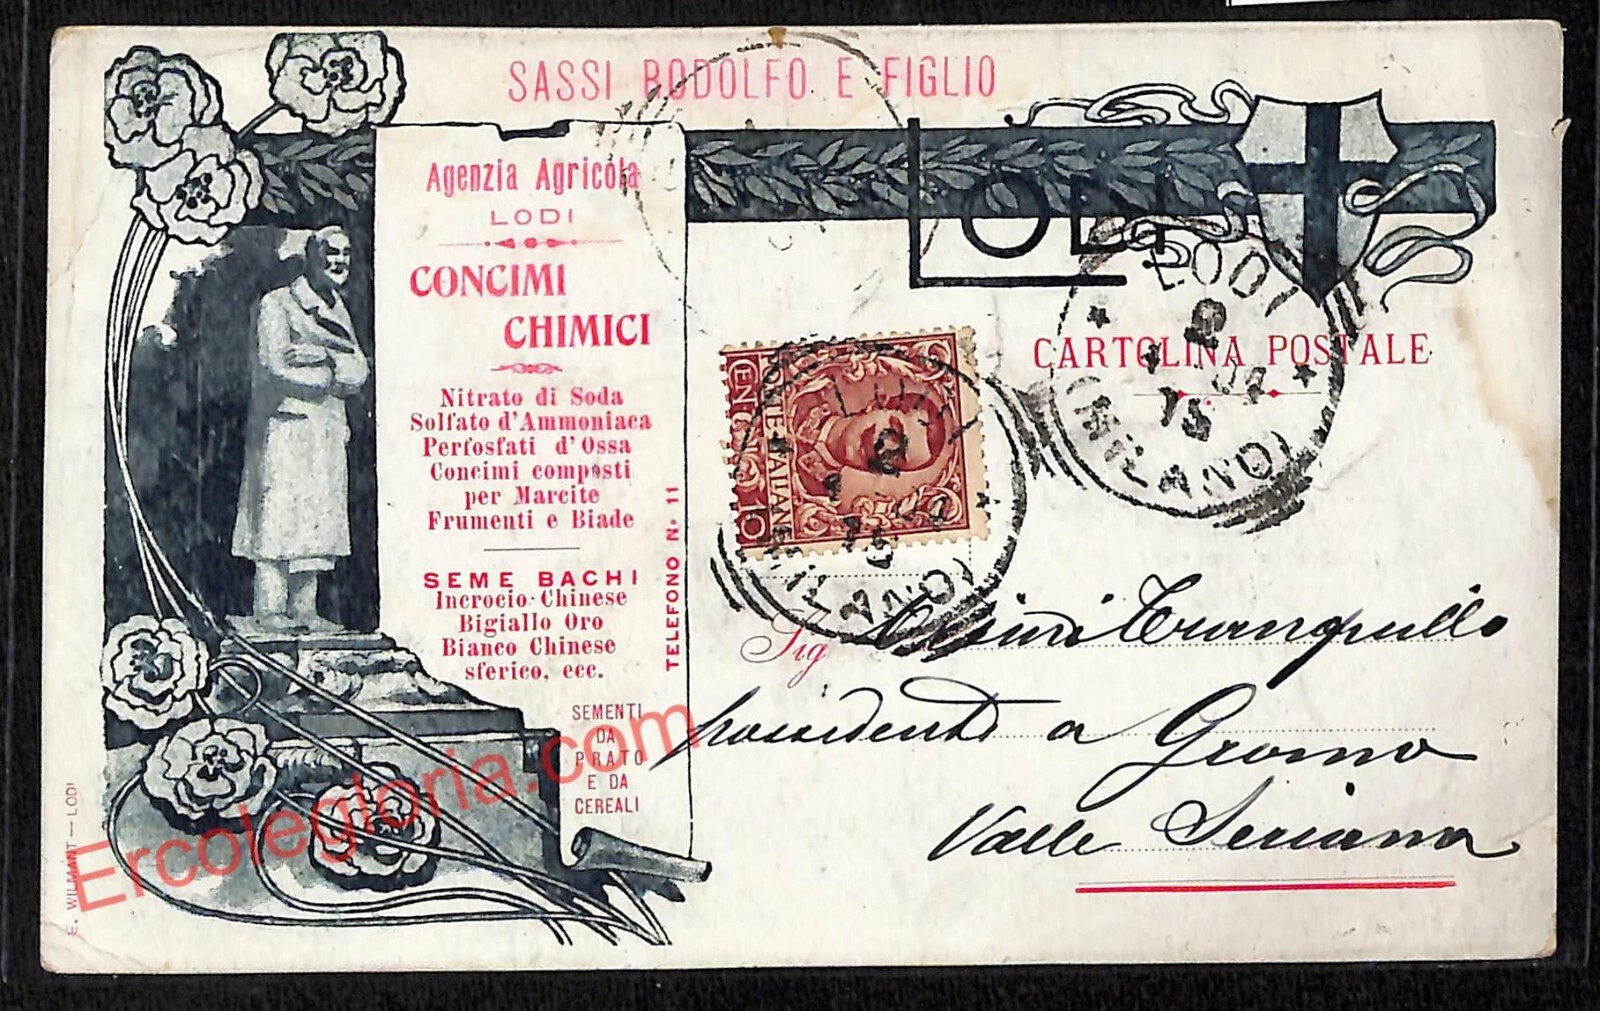 SASSI RODOLFO E FIGLIO
Agenzia Agricola
LODI
CONCIMI
CHIMICI
Nitrato di Soda
Solfato d'Ammoniaca
Perfosfati d'Ossa
Concimi composti
per Marcite
Frumenti e Biade
SEME BACHI
Incrocio Chinese
Bigiallo Oro
Bianco Chinese
sferico, ecc.
TELEFONO N. 11
SEMENTI
DA
PRATO
E DA
CEREALI
E. WILMANT — LODI
LODI
CARTOLINA POSTALE
LODI
(MILANO)
POSTE ITALIANE
CENT. 10
LODI
(MILANO)
Sig
Tranquillo
possidente a Gromo
Valle Seriana
Ercolegloria.com